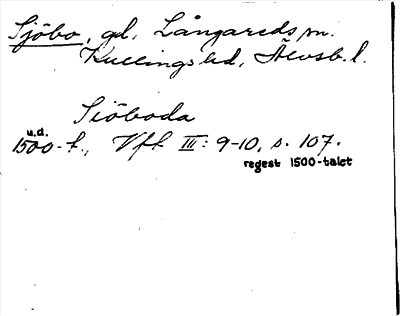 Sjöbo, gd, Långareds sn.
Kullings hd, Älvsb. l.
Siöboda
u.d.
1500-t., Vff III: 9-10, s. 107.
regest 1500-talet